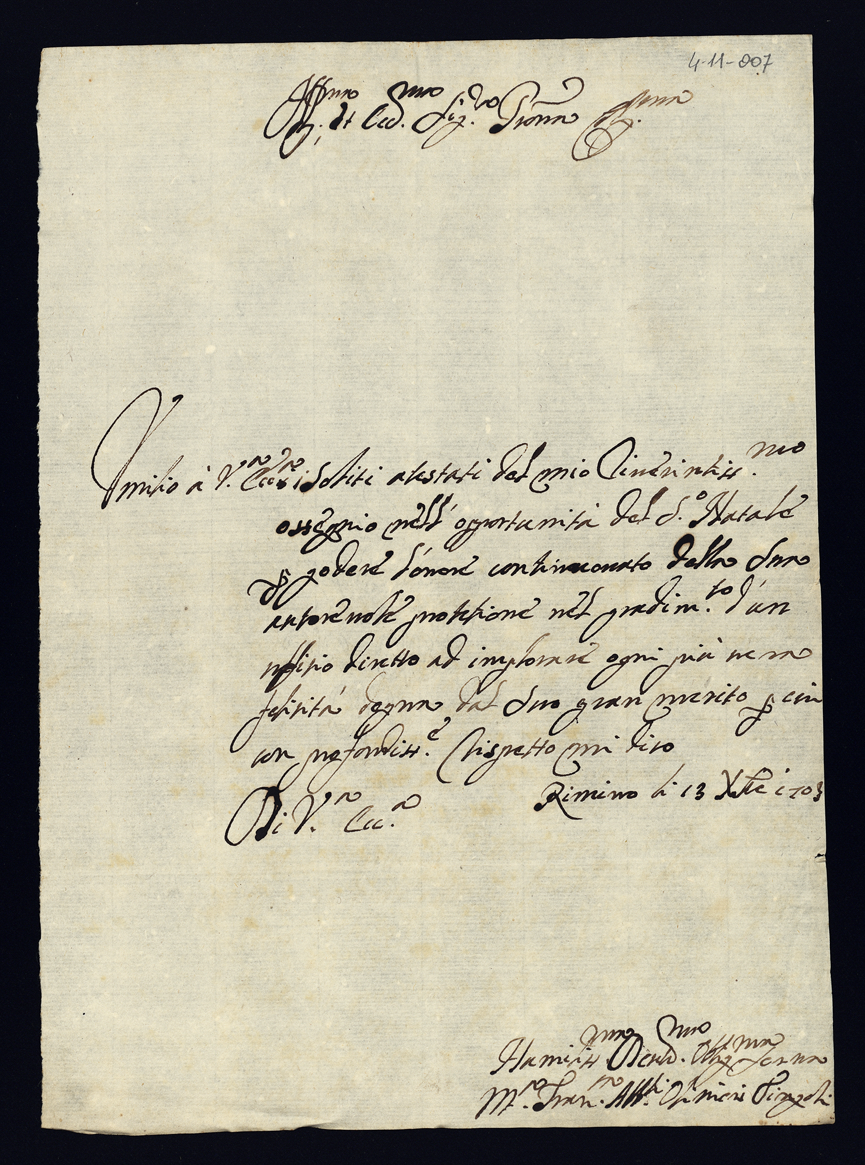 4-11-807
Ill.mo et Ecc.mo Sig.re P̄rone
Umilio à V.ra Ecc.za i soliti atestati del mio riverintiss.mo
ossequio nell'opportunità del S.o Natale
p godere l'onore continouato della Sua
autorevole protetione nel gradim.to d'un
uffitio diretto ad implorare ogni più vera
felicità degna dal Suo gran merito p cui
con profondiss.o rispetto mi dico
Di V.ra Ecc.za
Rimino li 13 Xbre 1703
Humiliss.ma Devot.ma Obl.ma Serva
M.a Fran.ca